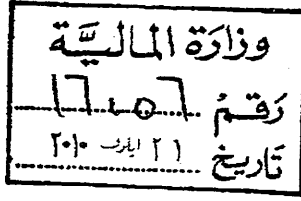 وزارَة الماليَّة
رَقمْ
تَاريخ ٢١ ايلول ٢٠١٠